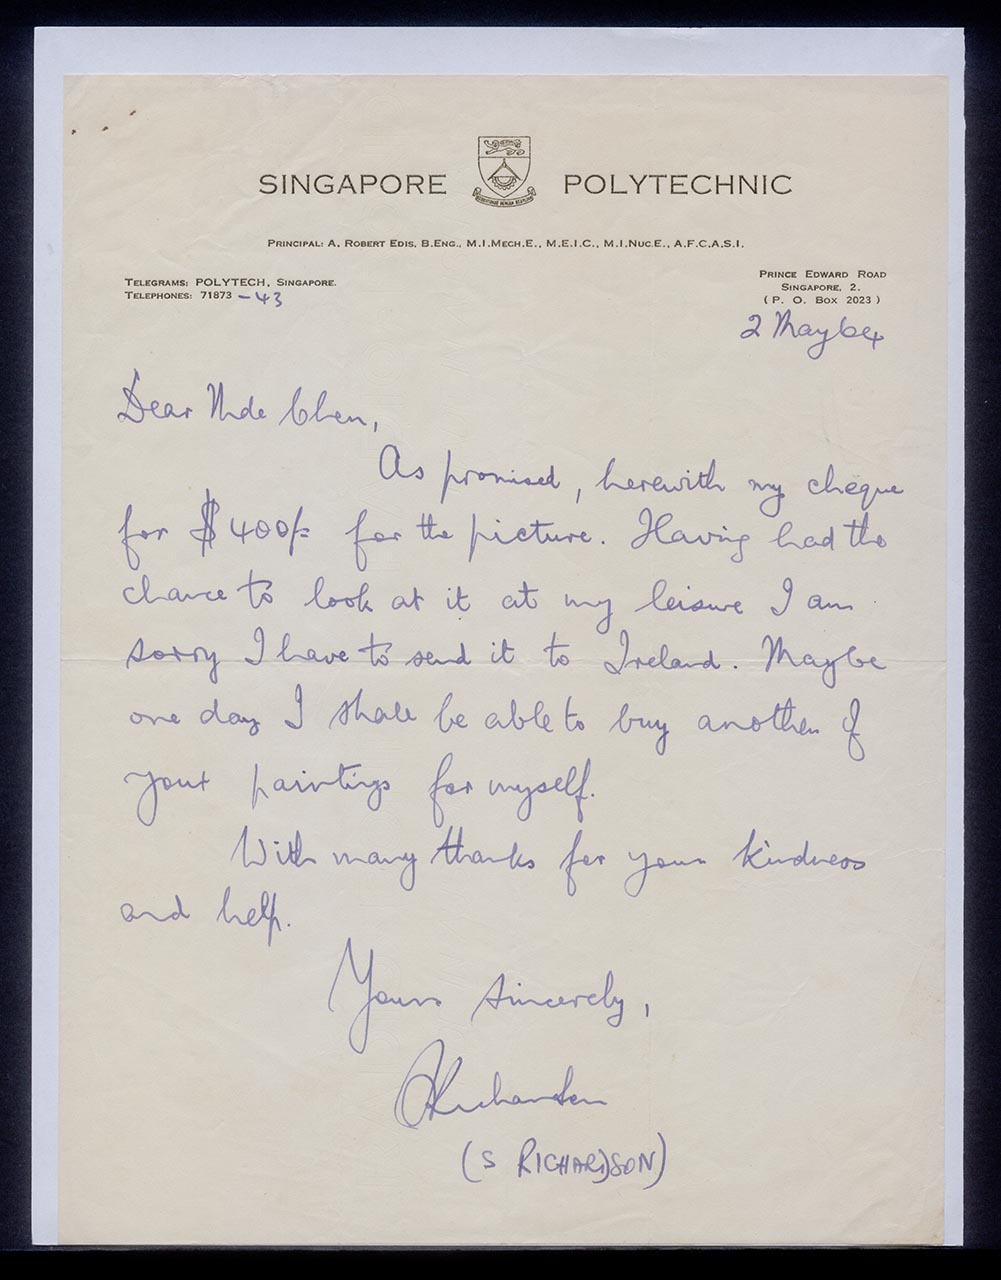 SINGAPORE POLYTECHNIC
PRINCIPAL: A. ROBERT EDIS, B.ENG., M.I.MECH.E., M.E.I.C., M.I.NUC.E., A.F.C.A.S.I.
TELEGRAMS: POLYTECH, SINGAPORE.
TELEPHONES: 71873 - 43
PRINCE EDWARD ROAD
SINGAPORE, 2.
( P. O. BOX 2023 )
2 May 64
Dear Mde Chen,
As promised, herewith my cheque
for $400/= for the picture. Having had the
chance to look at it at my leisure I am
sorry I have to send it to Ireland. Maybe
one day I shall be able to buy another of
your paintings for myself.
With many thanks for your kindness
and help.
Yours sincerely,
SRichardson
(S RICHARDSON)